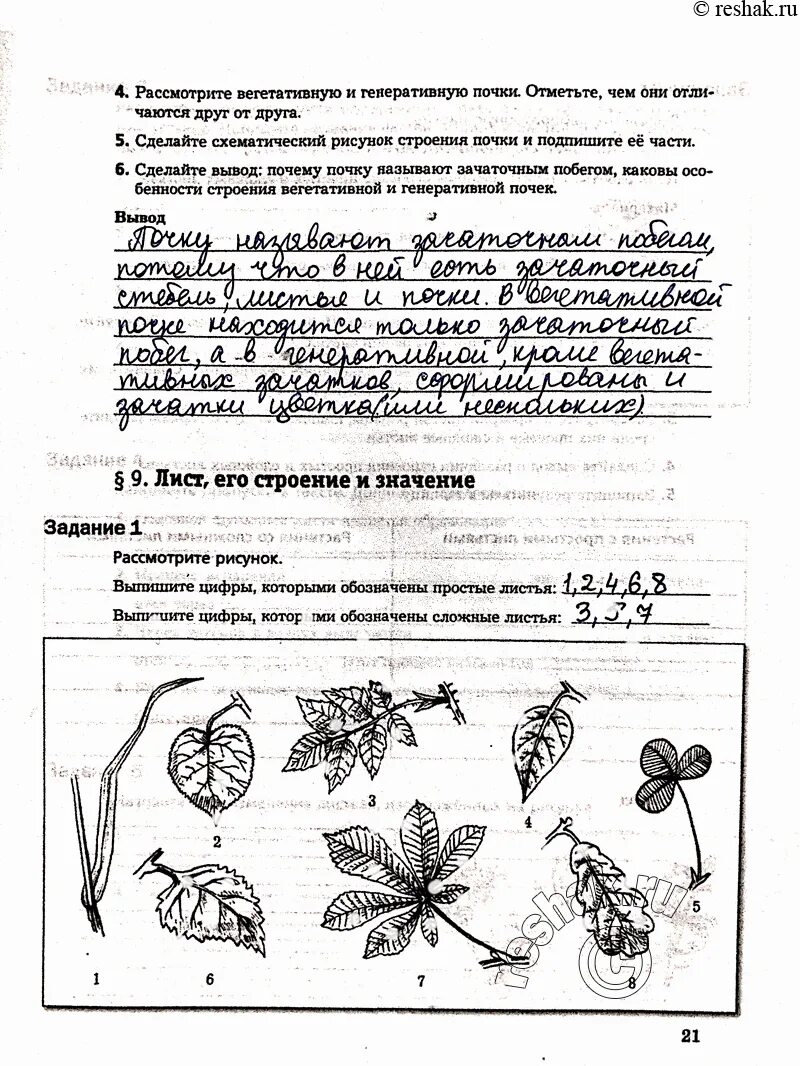 © reshak.ru
4. Рассмотрите вегетативную и генеративную почки. Отметьте, чем они отли-
чаются друг от друга.
5. Сделайте схематический рисунок строения почки и подпишите её части.
6. Сделайте вывод: почему почку называют зачаточным побегом, каковы осо-
бенности строения вегетативной и генеративной почек.
Вывод
Почку называют зачаточным побегом,
потому что в ней есть зачаточный
стебель, листья и почки. В вегетативной
почке находится только зачаточный
побег, а в генеративной, кроме вегета-
тивных зачатков, сформированы и
зачатки цветка (или нескольких)
§ 9. Лист, его строение и значение
Задание 1
Рассмотрите рисунок.
Выпишите цифры, которыми обозначены простые листья: 1,2,4,6,8
Выпишите цифры, которыми обозначены сложные листья: 3,5,7
3
2
4
5
1
6
7
8
reshak.ru
©
21